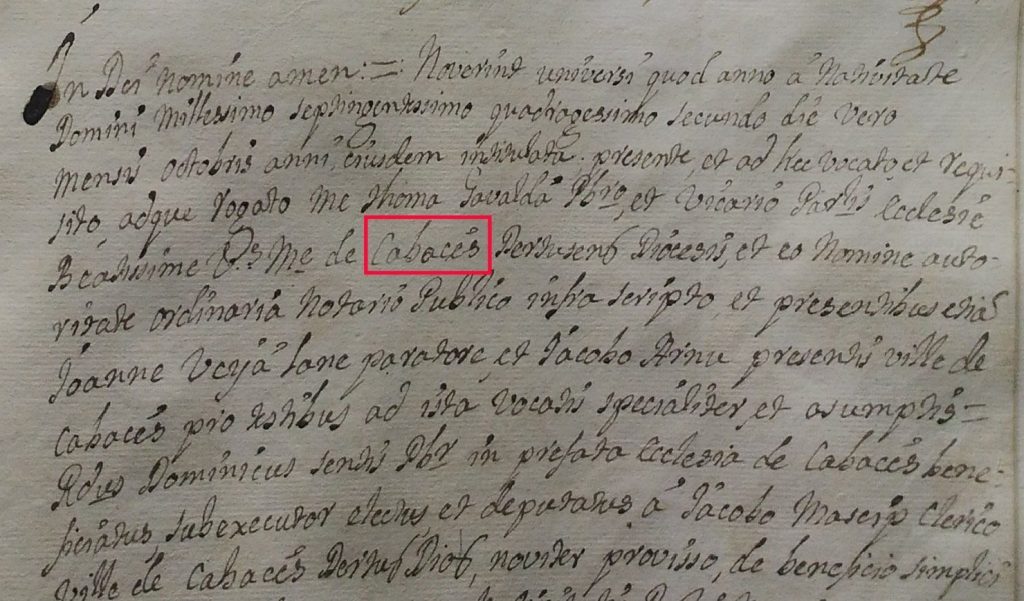 In Dei Nomine amen :=: Noverint universi quod anno à Nativitate
Domini Millessimo septingentessimo quadragessimo secundo die vero
mensis octobris anni, eiusdem intitulata. presente, et ad hec vocato, et requi-
sito adque rogato me Thoma Gavaldà Pbro, et Vicario Parlis Ecclesie
Beatissime Vs Me de Cabacés Dertusens Diocesis, et eo Nomine auto-
ritate ordinaria Notario Publico infra scripto, et presentibus etiã
Joanne Veyá lane paratore, et Jacobo Arnu presentis ville de
Cabacés pro testibus ad ista vocatis specialiter, et asumptis=
Rdus Dominicus sentis Pbr in prefata Ecclesia de Cabacés bene-
ficiatus subexecutor electus et deputatus à Jacobo Masrip Clerico
ville de Cabacés Dertus Dios, noviter provisso, de beneficio simplici